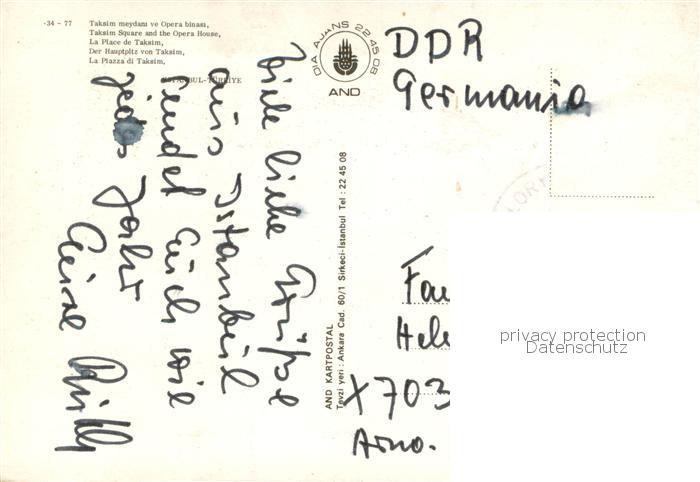 -34 - 77
Taksim meydanı ve Opera binası,
Taksim Square and the Opera House,
La Place de Taksim,
Der Hauptpltz von Taksim,
La Piazza di Taksim,
İSTANBUL-TÜRKİYE
DIA AJANS 22 45 08
AND
Viele liebe Grüße
aus Istanbul
sendet Euch wie
jedes Jahr
Eure
AND KARTPOSTAL
Tevzi yeri : Ankara Cad. 60/1 Sirkeci-İstanbul Tel : 22 45 08
DDR
Germania
Fam
Hel
X703
Arno.
privacy protection
Datenschutz